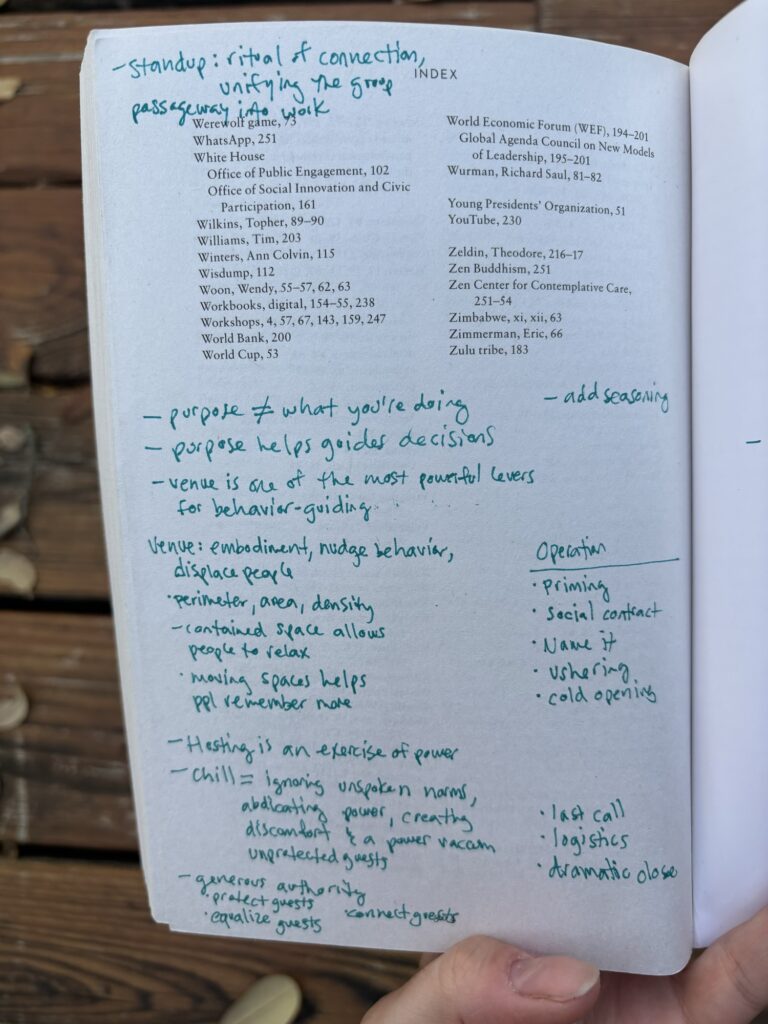 - standup: ritual of connection,
unifying the group
passageway into work
INDEX
Werewolf game, 73
WhatsApp, 251
White House
Office of Public Engagement, 102
Office of Social Innovation and Civic
Participation, 161
Wilkins, Topher, 89–90
Williams, Tim, 203
Winters, Ann Colvin, 115
Wisdump, 112
Woon, Wendy, 55–57, 62, 63
Workbooks, digital, 154–55, 238
Workshops, 4, 57, 67, 143, 159, 247
World Bank, 200
World Cup, 53
World Economic Forum (WEF), 194–201
Global Agenda Council on New Models
of Leadership, 195–201
Wurman, Richard Saul, 81–82
Young Presidents' Organization, 51
YouTube, 230
Zeldin, Theodore, 216–17
Zen Buddhism, 251
Zen Center for Contemplative Care,
251–54
Zimbabwe, xi, xii, 63
Zimmerman, Eric, 66
Zulu tribe, 183
- purpose ≠ what you're doing
- add seasoning
- purpose helps guides decisions
- venue is one of the most powerful levers
for behavior-guiding
Venue: embodiment, nudge behavior,
displace people
· perimeter, area, density
- contained space allows
people to relax
· moving spaces helps
ppl remember more
Operation
· priming
· social contract
· Name it
· ushering
· cold opening
- Hosting is an exercise of power
- Chill = ignoring unspoken norms,
abdicating power, creating
discomfort & a power vacuum
unprotected guests
- generous authority
· protect guests
· equalize guests · connect guests
· last call
· logistics
· dramatic close